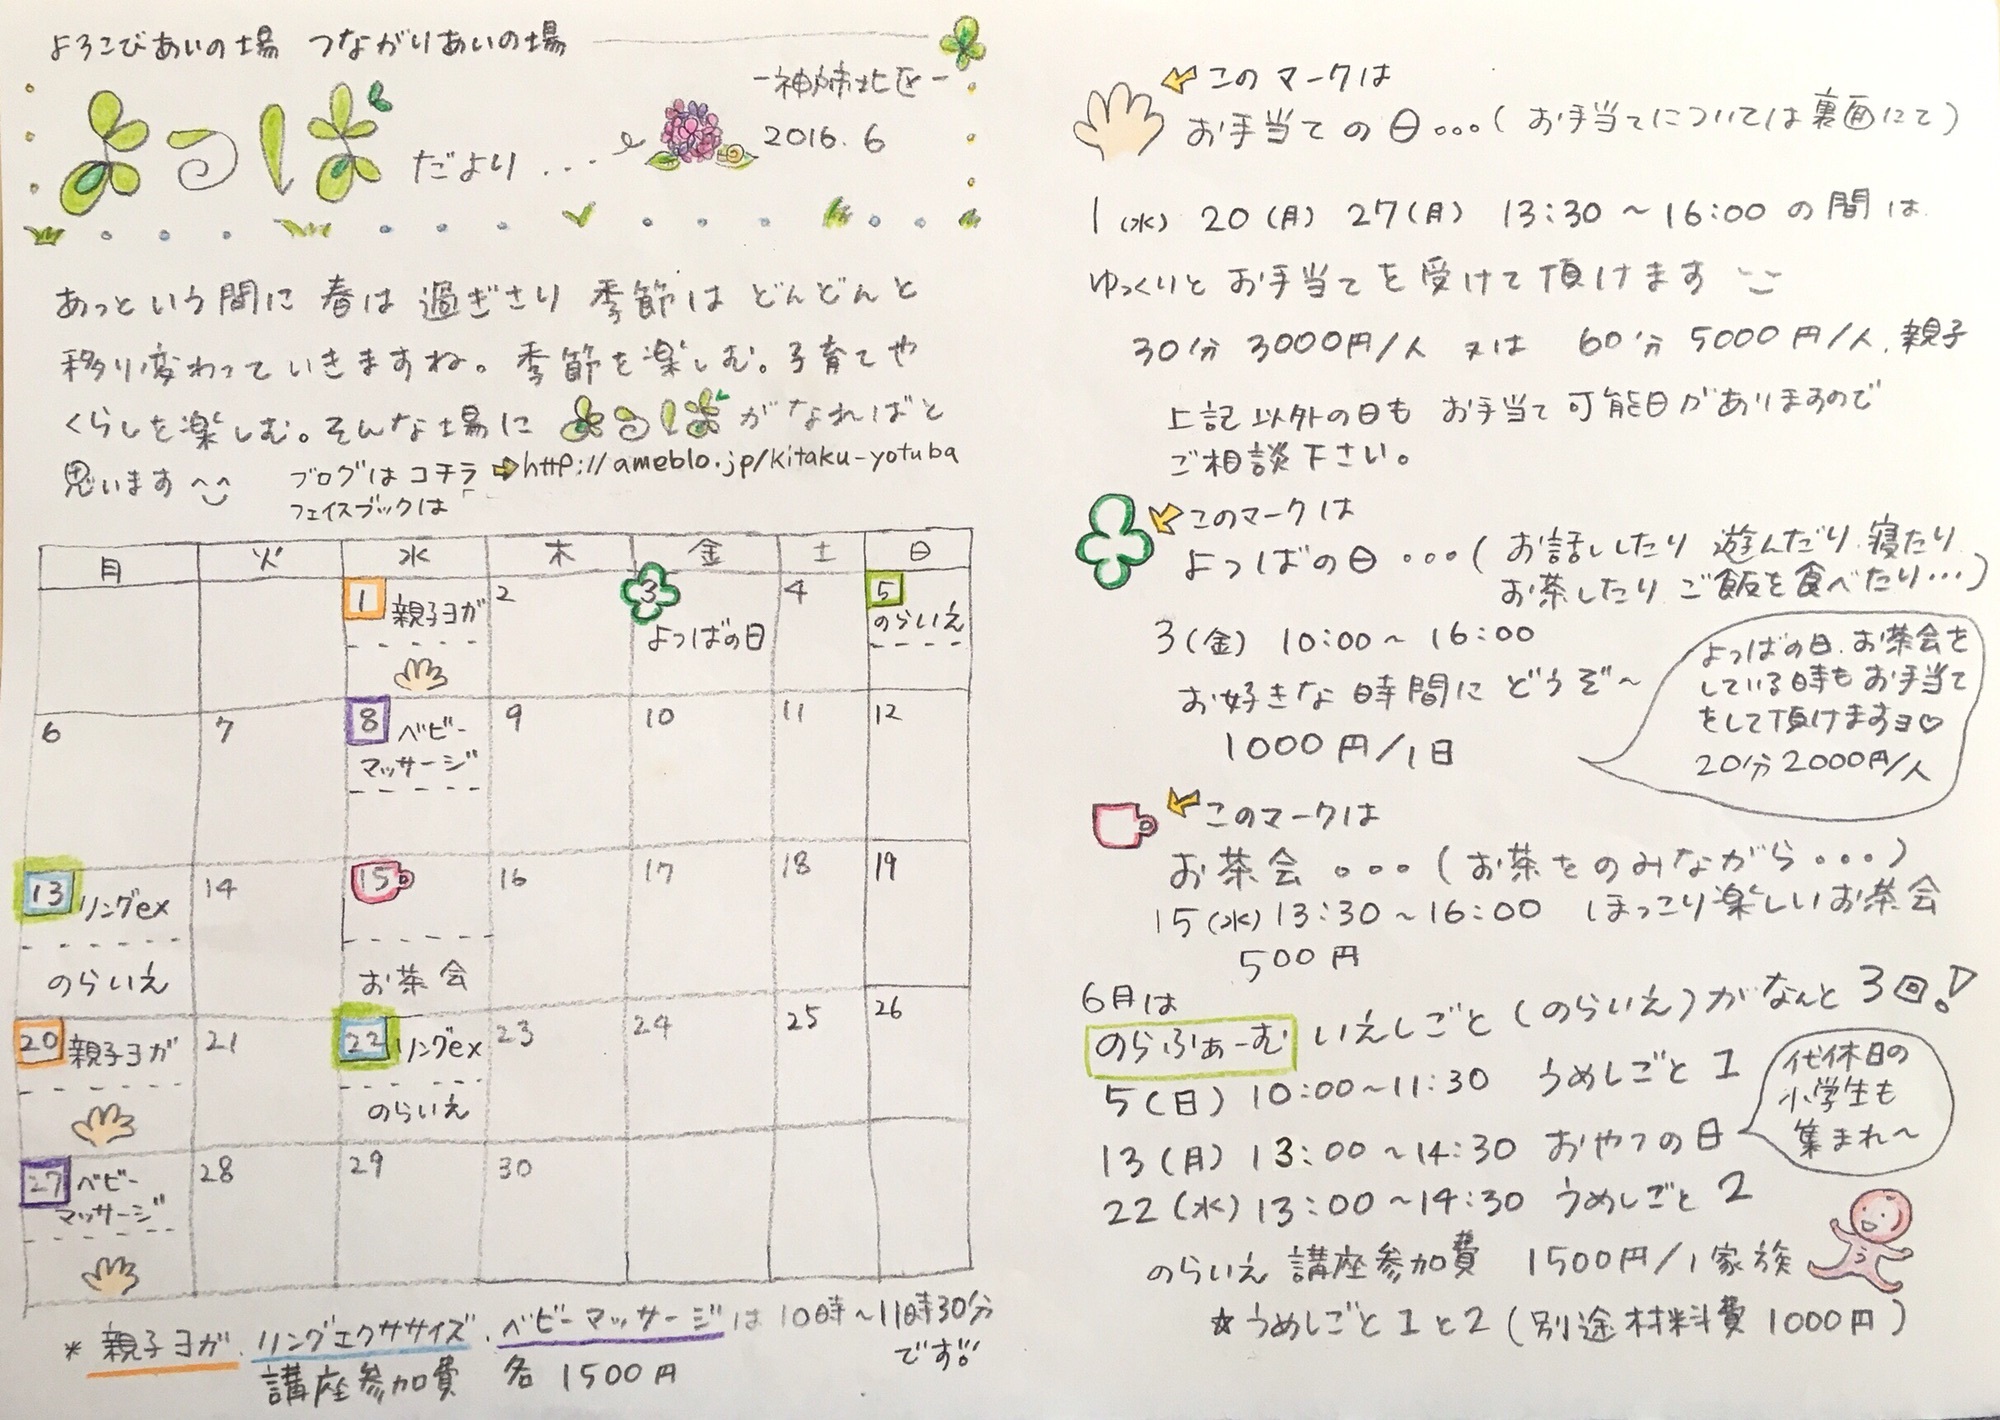 よろこびあいの場 つながりあいの場
よつば だより...
-神姉北区-
2016.6
あっという間に 春は 過ぎさり 季節は どんどんと
移り変わっていきますね。季節を楽しむ。子育てや
くらしを楽しむ。そんな場に よつば がなればと
思います
ブログは コチラ ⇨http://ameblo.jp/kitaku-yotuba
フェイスブックは「
月 火 水 木 金 土 日
1 親子ヨガ 2 3 よつばの日 4 5 のらいえ
6 7 8 ベビーマッサージ 9 10 11 12
13 リングex のらいえ 14 15 お茶会 16 17 18 19
20 親子ヨガ 21 22 リングex のらいえ 23 24 25 26
27 ベビーマッサージ 28 29 30
* 親子ヨガ.リングエクササイズ.ベビーマッサージは10時~11時30分
です!!
講座参加費 各 1500円
このマークは
お手当ての日...(お手当てについては裏面にて)
1(水) 20(月) 27(月) 13:30~16:00の間は
ゆっくりと お手当てを受けて頂けます
30分 3000円/人 又は 60分 5000円/人.親子
上記以外の日も お手当て可能日がありますので
ご相談下さい。
このマークは
よつばの日...(お話ししたり 遊んだり.寝たり
お茶したり ご飯を食べたり...)
3(金) 10:00~16:00
お好きな時間に どうぞ~
1000円/1日
よつばの日.お茶会を
している時も お手当て
をして頂けますヨ♡
20分2000円/人
このマークは
お茶会...(お茶をのみながら...)
15(水)13:30~16:00 ほっこり楽しいお茶会
500円
6月は
のらふぁーむ いえしごと(のらいえ)がなんと3回!
5(日)10:00~11:30 うめしごと1
13(月)13:00~14:30 おやつの日
代休日の
小学生も
集まれ~
22(水)13:00~14:30 うめしごと2
のらいえ 講座参加費 1500円/1家族
☆うめしごと1と2(別途材料費1000円)